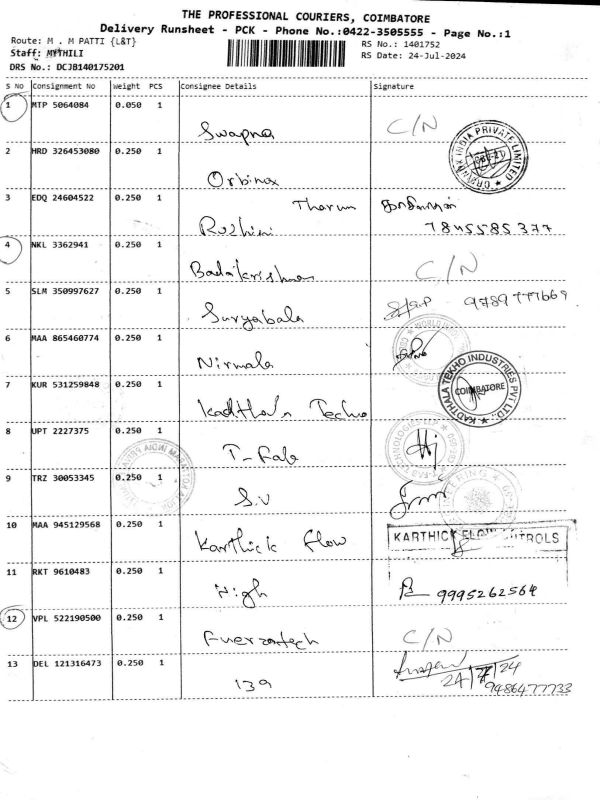 THE PROFESSIONAL COURIERS, COIMBATORE
Delivery Runsheet - PCK - Phone No.:0422-3505555 - Page No.:1
Route: M . M PATTI {L&T}
RS No.: 1401752
Staff: MYTHILI
RS Date: 24-Jul-2024
DRS No.: DCJB140175201
S No Consignment No Weight PCS Consignee Details Signature
1 MTP 5064084 0.050 1
Swapna C/N
2 HRD 326453080 0.250 1
Orbinox
3 EDQ 24604522 0.250 1
Tharun
Roshini 7845585377
4 NKL 3362941 0.250 1
Balakrishnan C/N
5 SLM 350997627 0.250 1
Suryabala 9789777669
6 MAA 865460774 0.250 1
Nirmala
7 KUR 531259848 0.250 1
KADTHALA TEKHO INDUSTRIES PVT LTD.
COIMBATORE
Kadthala Techno
8 UPT 2227375 0.250 1
T-Fab
9 TRZ 30053345 0.250 1
S.V
10 MAA 945129568 0.250 1
Karthick Flow
KARTHICK FLOW CONTROLS
11 RKT 9610483 0.250 1
High 9995262564
12 VPL 522190500 0.250 1
C/N
13 DEL 121316473 0.250 1
139 24/7/24
9486477733